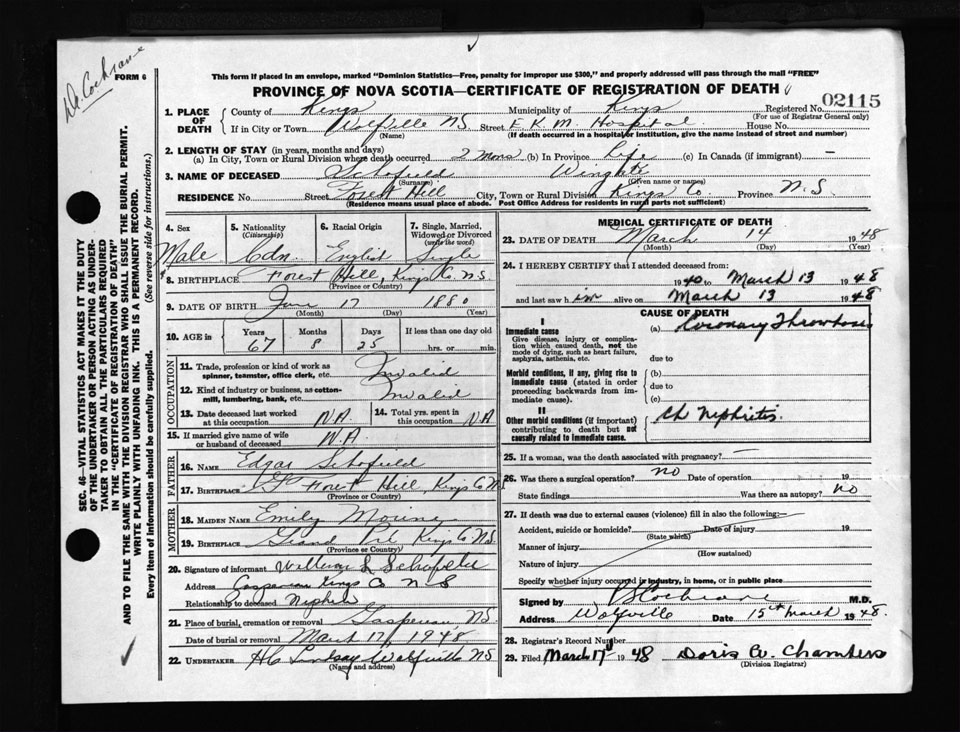 Dr. Cochrane
FORM 6
This form if placed in an envelope, marked "Dominion Statistics—Free, penalty for improper use $300," and properly addressed will pass through the mail "FREE"
PROVINCE OF NOVA SCOTIA—CERTIFICATE OF REGISTRATION OF DEATH
1. PLACE OF DEATH County of Kings Municipality of Kings Registered No. 02115
(For use of Registrar General only)
If in City or Town Wolfville N.S. Street E.K.M. Hospital House No.
(Name) (If death occurred in a hospital or institution, give the name instead of street and number)
2. LENGTH OF STAY (in years, months and days)
(a) In City, Town or Rural Division where death occurred 2 Mons (b) In Province Life (c) In Canada (if immigrant) —
3. NAME OF DECEASED Schofield
(Surname) (Given name or names)
RESIDENCE No. Street Forest Hill City, Town or Rural Division Kings Co. Province N.S.
(Residence means usual place of abode. Post Office Address for residents in rural parts not sufficient)
4. Sex Male
5. Nationality (Citizenship) Cdn.
6. Racial Origin English
7. Single, Married, Widowed or Divorced (write the word) Single
8. BIRTHPLACE Forest Hill, Kings Co N.S.
(Province or Country)
9. DATE OF BIRTH 17 1880
(Month) (Day) (Year)
10. AGE in Years Months Days If less than one day old
67 8 25 hrs. or min.
OCCUPATION
11. Trade, profession or kind of work as spinner, teamster, office clerk, etc. Invalid
12. Kind of industry or business, as cotton-mill, lumbering, bank, etc. Invalid
13. Date deceased last worked at this occupation N.A.
14. Total yrs. spent in this occupation N.A
15. If married give name of wife or husband of deceased N.A
FATHER
16. NAME Edgar Schofield
17. BIRTHPLACE Forest Hill, Kings Co N.S.
(Province or Country)
MOTHER
18. MAIDEN NAME Emily
19. BIRTHPLACE Grand Pré Kings Co N.S.
(Province or Country)
20. Signature of informant William L Schofield
Address Gaspereau Kings Co N.S
Relationship to deceased Nephew
21. Place of burial, cremation or removal Gaspereau N.S.
Date of burial or removal March 17, 1948
22. UNDERTAKER Lindsay Wolfville N.S
(Name and address)
MEDICAL CERTIFICATE OF DEATH
23. DATE OF DEATH March 14 1948
(Month) (Day) (Year)
24. I HEREBY CERTIFY that I attended deceased from:
1940 to March 13 1948
and last saw him alive on March 13 1948
CAUSE OF DEATH
I
Immediate cause (a) Coronary Thrombosis
Give disease, injury or complication which caused death, not the mode of dying, such as heart failure, asphyxia, asthenia, etc. due to
Morbid conditions, if any, giving rise to immediate cause (stated in order proceeding backwards from immediate cause). (b)
due to
(c)
II
Other morbid conditions (if important) contributing to death but not causally related to immediate cause. Ch Nephritis.
25. If a woman, was the death associated with pregnancy? —
26. Was there a surgical operation? no Date of operation 19
State findings Was there an autopsy? no
27. If death was due to external causes (violence) fill in also the following:—
Accident, suicide or homicide? Date of injury 19
(State which)
Manner of injury
(How sustained)
Nature of injury
Specify whether injury occurred in industry, in home, or in public place
Signed by Cochrane M.D.
Address Wolfville Date 15th March 1948.
28. Registrar's Record Number
29. Filed March 17 1948 Doris W. Chambers
(Division Registrar)
SEC. 46—VITAL STATISTICS ACT MAKES IT THE DUTY
OF THE UNDERTAKER OR PERSON ACTING AS UNDER-
TAKER TO OBTAIN ALL THE PARTICULARS REQUIRED
IN THE "CERTIFICATE OF REGISTRATION OF DEATH"
AND TO FILE THE SAME WITH THE DIVISION REGISTRAR WHO SHALL ISSUE THE BURIAL PERMIT.
WRITE PLAINLY WITH UNFADING INK. THIS IS A PERMANENT RECORD.
Every item of information should be carefully supplied. (See reverse side for instructions.)